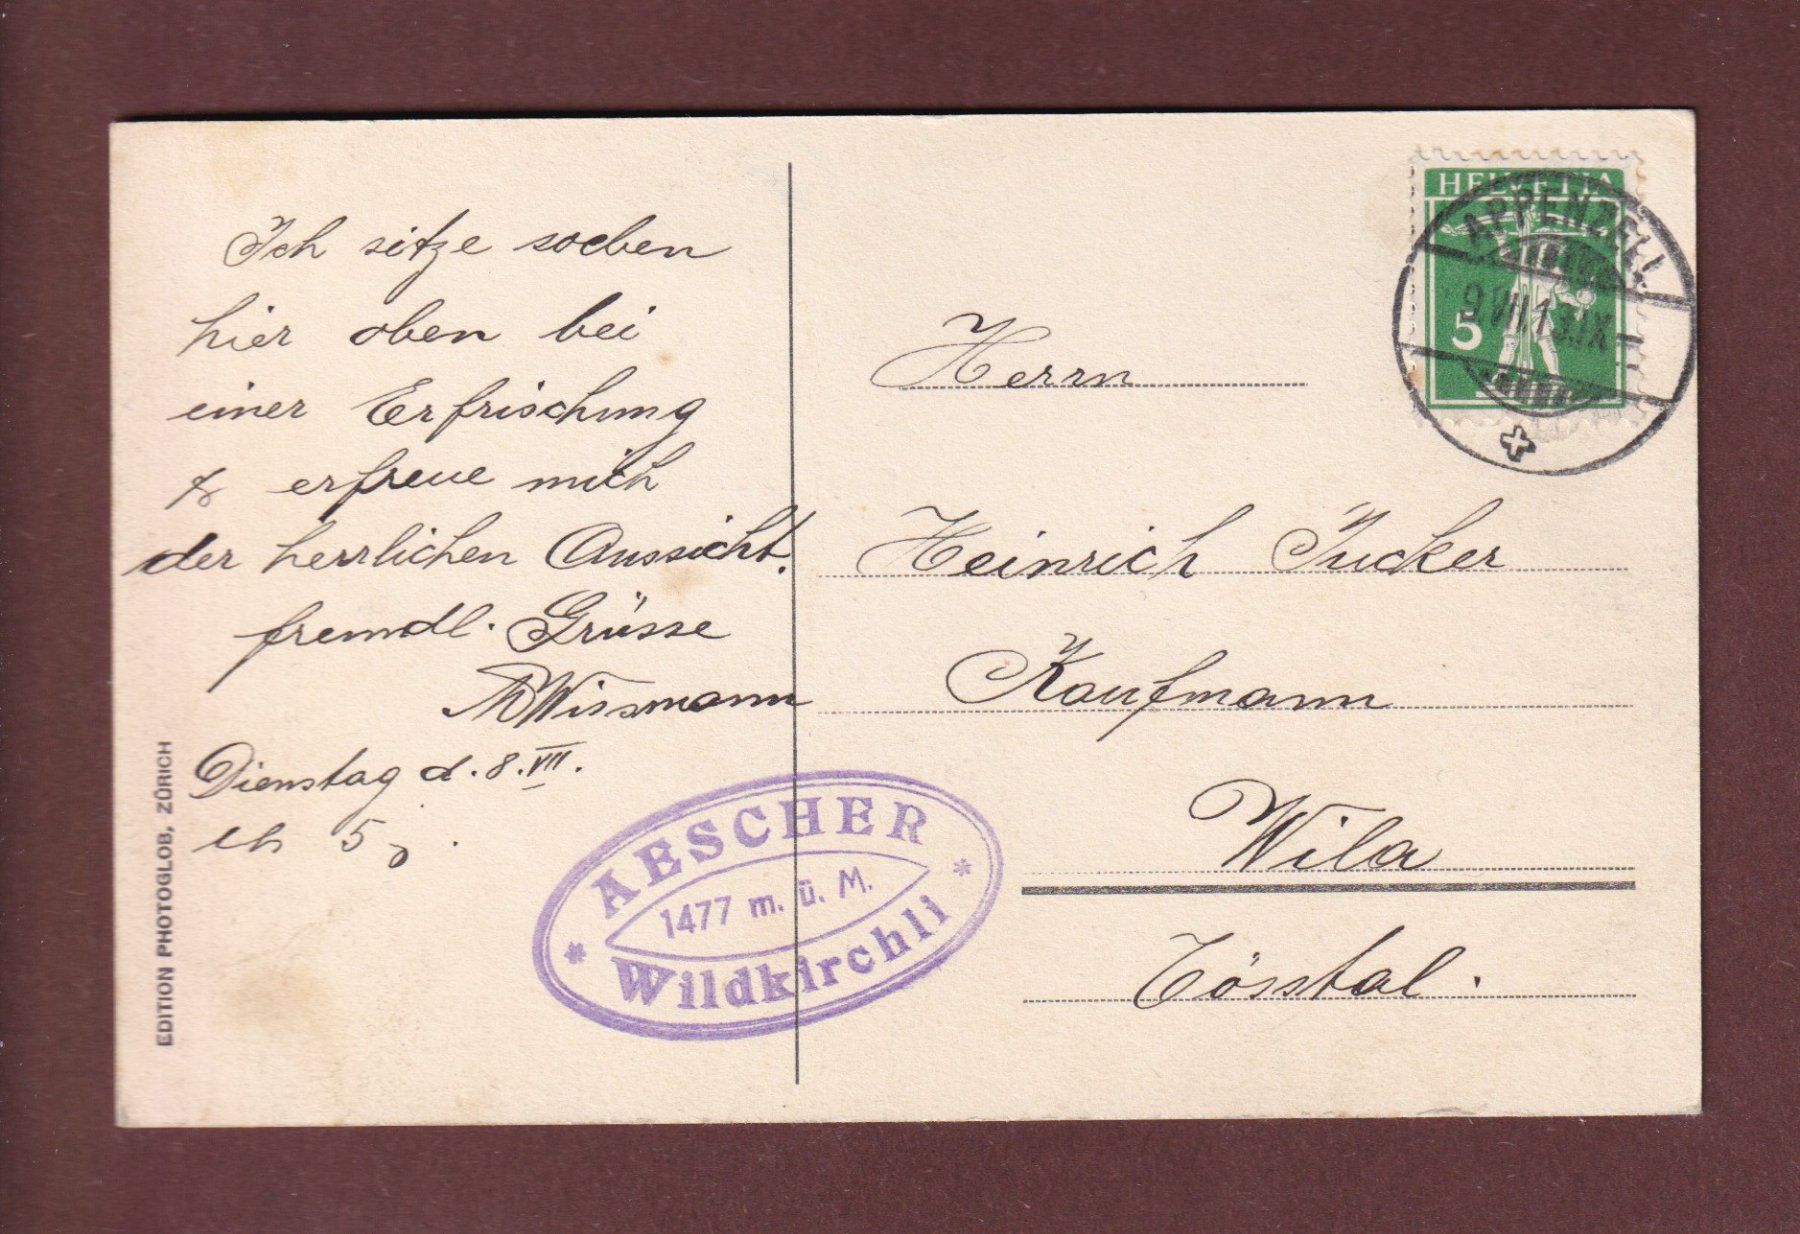 Ich sitze soeben
hier oben bei
einer Erfrischung
& erfreue mich
der herrlichen Aussicht.
freundl. Grüsse
Wissmann
Dienstag d. 8. VII.
EDITION PHOTOGLOB, ZÜRICH
AESCHER
1477 m. ü. M.
Wildkirchli
HELVETIA
5
APPENZELL
9.VII.13.IX
Herrn
Heinrich Jucker
Kaufmann
Wila
Tösstal.